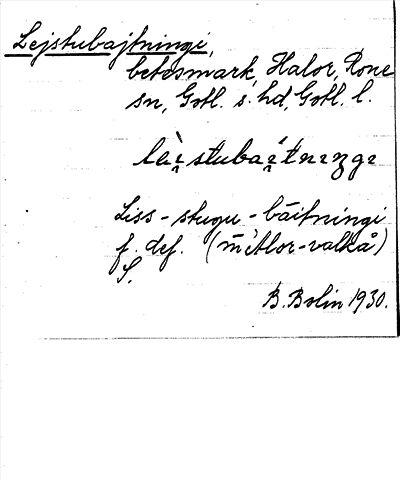 Lejstubajtningi,
betesmark, Halor, Rone
sn, Gotl. s. hd, Gotl. l.
Liss-stugu-bäitningi
f. def. (mitlor-valkå)
S.
B. Bolin 1930.